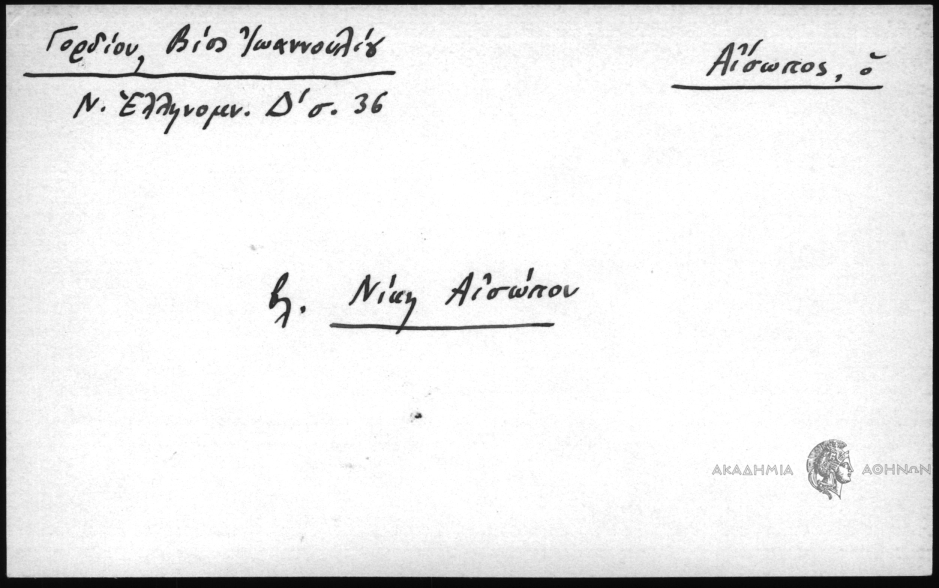 Γορδίου, Βίος Ἰωαννουλίου
Ν. Ἑλληνομν. Δ' σ. 36
Αἴσωπος, ὁ
βλ. Νίκη Αἰσώπου
ΑΚΑΔΗΜΙΑ ΑΘΗΝΩΝ